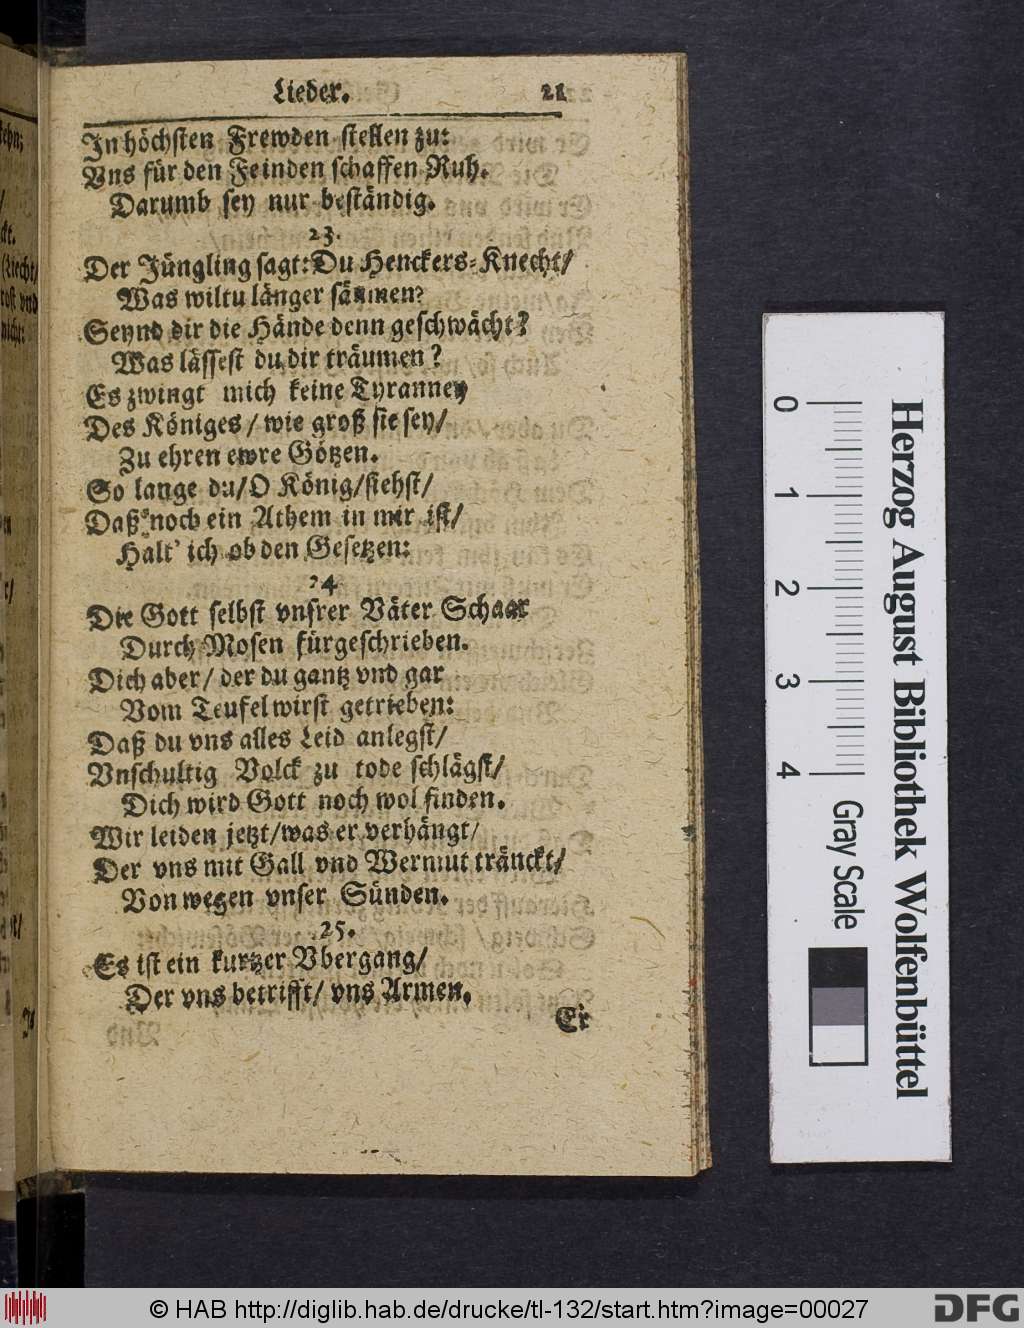 Lieder. 21
In höchsten Frewden stellen zu:
Vns für den Feinden schaffen Ruh.
Darumb sey nur beständig.
23.
Der Jüngling sagt: Du Henckers-Knecht/
Was wiltu länger säumen?
Seynd dir die Hände denn geschwächt?
Was lässest du dir träumen?
Es zwingt mich keine Tyranney
Des Königes / wie groß sie sey/
Zu ehren ewre Götzen.
So lange du/ O König/ siehst/
Daß noch ein Athem in mir ist/
Halt' ich ob den Gesetzen:
24.
Die Gott selbst vnsrer Väter Schaar
Durch Mosen fürgeschrieben.
Dich aber/ der du gantz vnd gar
Vom Teufel wirst getrieben:
Daß du vns alles Leid anlegst/
Vnschultig Volck zu tode schlägst/
Dich wird Gott noch wol finden.
Wir leiden jetzt/ was er verhängt/
Der vns mit Gall vnd Wermut tränckt/
Von wegen vnser Sünden.
25.
Es ist ein kurtzer Vbergang/
Der vns betrifft/ vns Armen.
Er
0 1 2 3 4
Gray Scale
Herzog August Bibliothek Wolfenbüttel
© HAB http://diglib.hab.de/drucke/tl-132/start.htm?image=00027
DFG